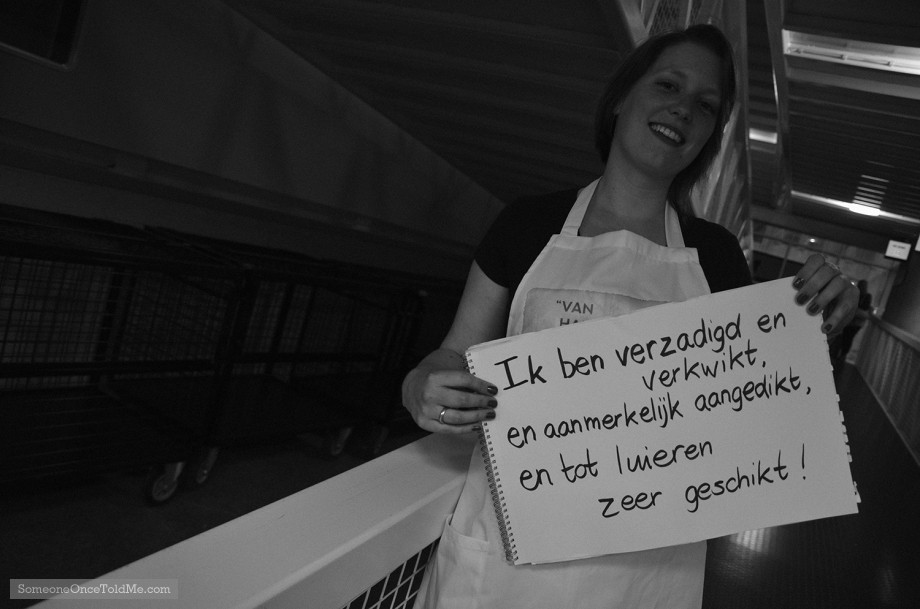 "VAN
Ik ben verzadigd en
verkwikt,
en aanmerkelijk aangedikt,
en tot luieren
zeer geschikt!
SomeoneOnceToldMe.com